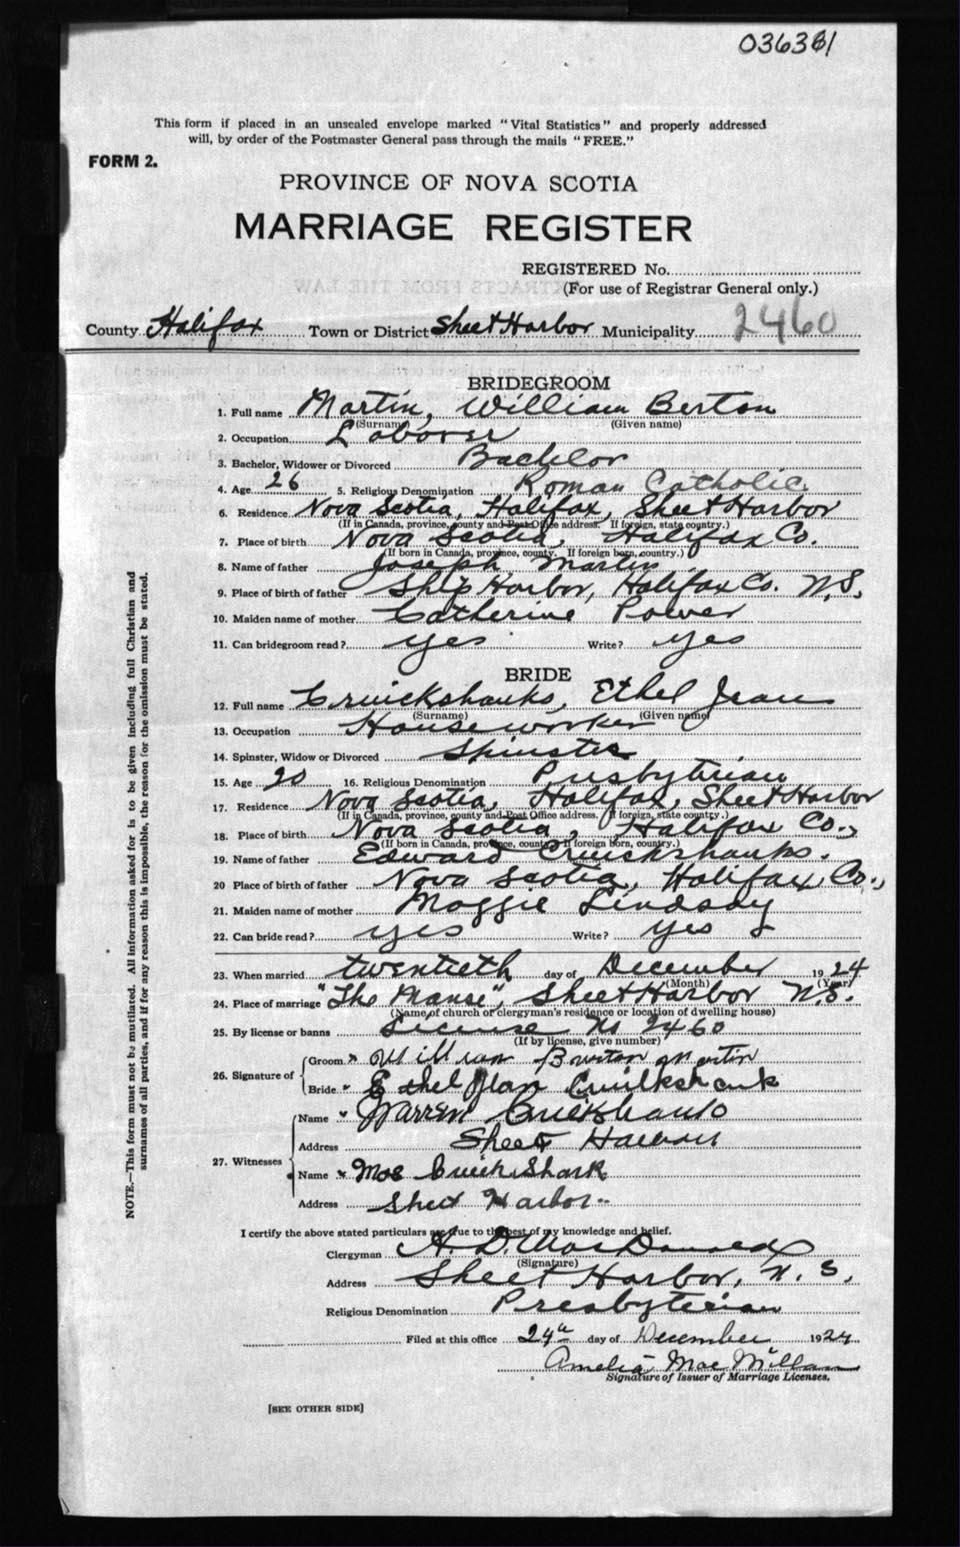 036361
This form if placed in an unsealed envelope marked "Vital Statistics" and properly addressed
will, by order of the Postmaster General pass through the mails "FREE."
FORM 2.
PROVINCE OF NOVA SCOTIA
MARRIAGE REGISTER
REGISTERED No.
(For use of Registrar General only.)
County Halifax Town or District Sheet Harbor Municipality 2460
BRIDEGROOM
1. Full name Martin, William Berton
(Surname) (Given name)
2. Occupation Laborer
3. Bachelor, Widower or Divorced Bachelor
4. Age 26 5. Religious Denomination Roman Catholic
6. Residence Nova Scotia, Halifax, Sheet Harbor
(If in Canada, province, county and Post Office address. If foreign, state country.)
7. Place of birth Nova Scotia, Halifax Co.
(If born in Canada, province, county. If foreign born, country.)
8. Name of father Joseph Martin
9. Place of birth of father Ship Harbor, Halifax Co. N.S.
10. Maiden name of mother Catherine Power
11. Can bridegroom read? yes Write? yes
BRIDE
12. Full name Cruickshanks, Ethel Jean
(Surname) (Given name)
13. Occupation Houseworker
14. Spinster, Widow or Divorced Spinster
15. Age 20 16. Religious Denomination Presbyterian
17. Residence Nova Scotia, Halifax, Sheet Harbor
(If in Canada, province, county and Post Office address. If foreign, state country.)
18. Place of birth Nova Scotia, Halifax Co.,
(If born in Canada, province, county. If foreign born, country.)
19. Name of father Edward Cruickshanks.
20 Place of birth of father Nova Scotia, Halifax, Co.,
21. Maiden name of mother Maggie Lindsay
22. Can bride read? yes Write? yes
23. When married twentieth day of December 1924
(Month) (Year)
24. Place of marriage "The Manse", Sheet Harbor N.S.
(Name of church or clergyman's residence or location of dwelling house)
25. By license or banns License No 2460
(If by license, give number)
26. Signature of Groom William Burton Martin
Bride Ethel Jean Cruikshank
27. Witnesses Name Warren Cruikshank
Address Sheet Harbor
Name Mae CruickShank
Address Sheet Harbor
I certify the above stated particulars are true to the best of my knowledge and belief.
Clergyman A. D. MacDonald
(Signature)
Address Sheet Harbor, N. S.
Religious Denomination Presbyterian
Filed at this office 24th day of December 1924
Amelia MacMillan
Signature of Issuer of Marriage Licenses.
[SEE OTHER SIDE]
NOTE.—This form must not be mutilated. All information asked for is to be given including full Christian and
surnames of all parties, and if for any reason this is impossible, the reason for the omission must be stated.